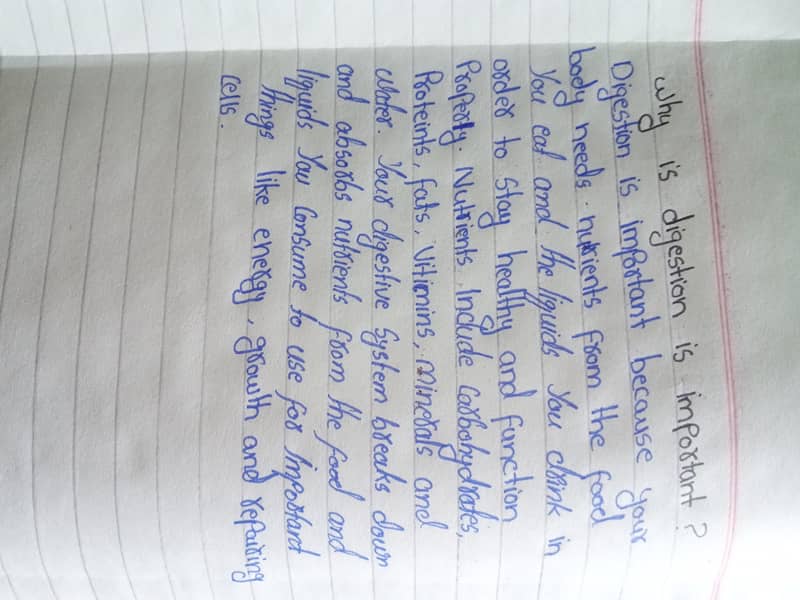 why is digestion is important?
Digestion is important because your
body needs nutrients from the food
You eat and the liquids You drink in
order to stay healthy and function
Properly Nutrients Include Carbohydrates,
Proteints, fats, Vitimins, minerals and
Water. Your digestive System breaks down
and absorbs nutrients from the food and
liquids You Consume to use for important
things like energy, growth and repairing
Cells.